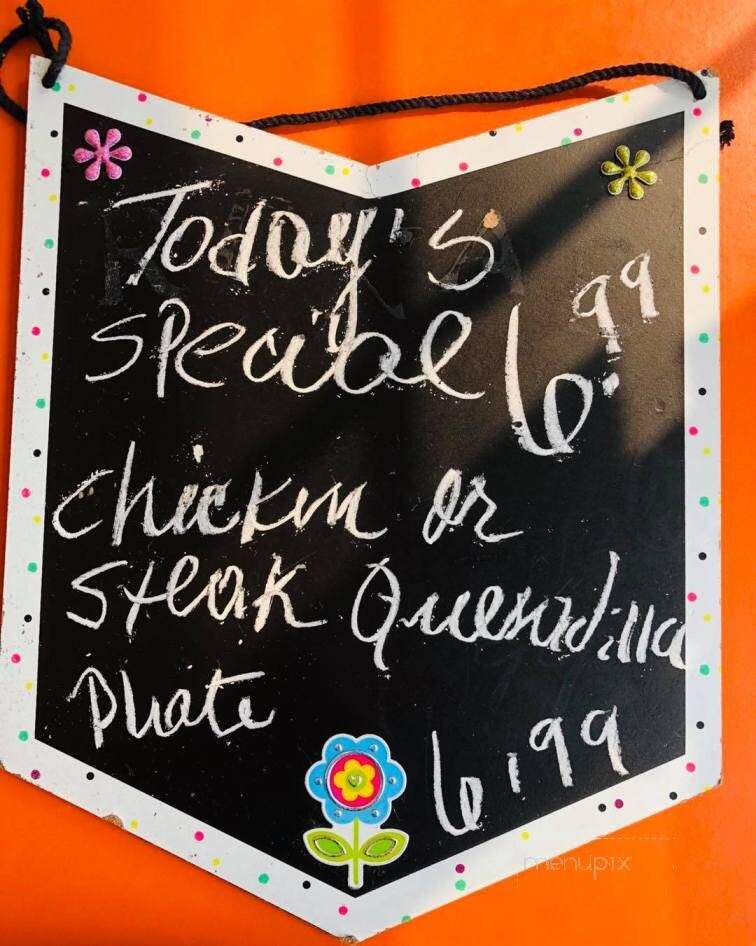 Today's
special 6.99
chicken or
steak Quesadilla
plate
6.99
menupix